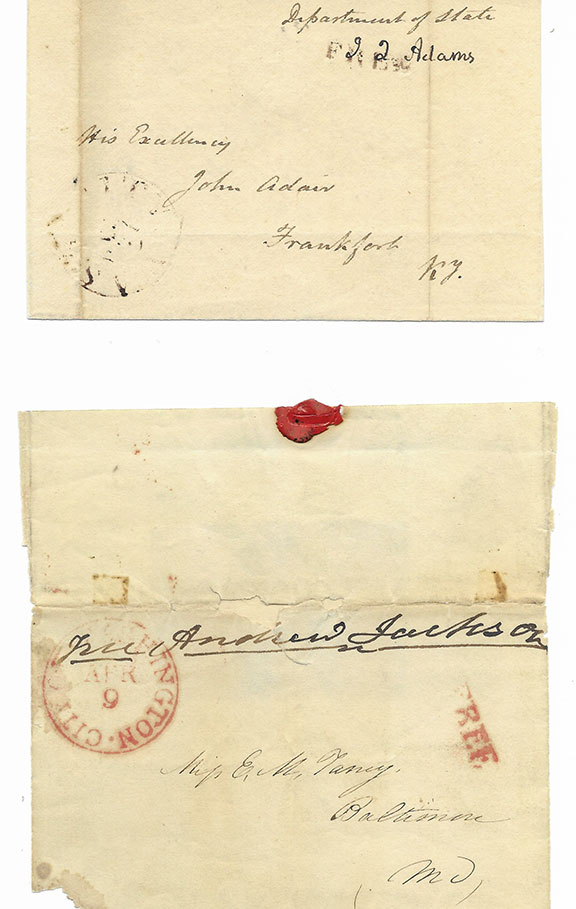 Department of State
FREE
J. Q. Adams
His Excellency
John Adair
Frankfort
Ky.
free Andrew Jackson
WASHINGTON CITY
APR
9
FREE
Miss E. M. Taney.
Baltimore
(Md)